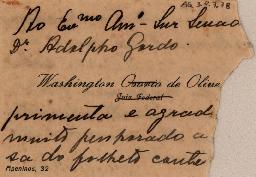 AG 3.2.7.18
Ao Exmo Amo Snr Senad
Dr Adolpho Gordo.
Washington Osorio de Olive
Juiz Federal
primenta e agrad
muito penhorado a
sa do folheto conte
Apeninos, 32